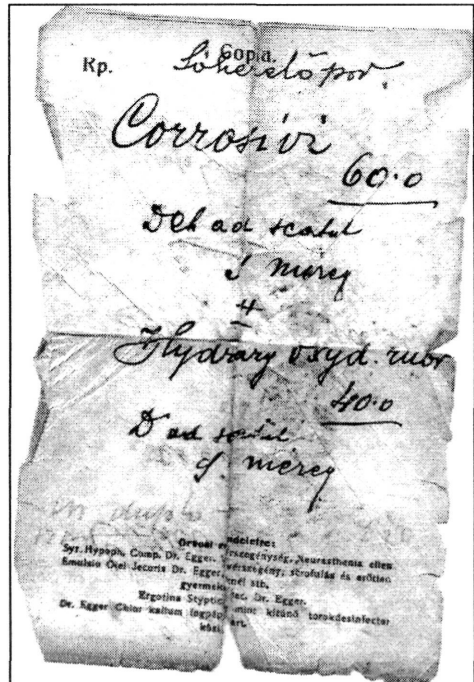 Copia.
Rp. Lőherelő por.
Corrosivi
60·0
ad scatul
S méreg
#
Hydrarg oxyd. rubr
40·0
D ad scatul
S. méreg
in duplo
Orvosi rendeletre:
Syr. Hypoph. Comp. Dr. Egger. Neurasthenia ellen
Emulsio Olei Jecoris Dr. Egger, vérszegény, scrofulás és erőtlen
gyermekeknél stb.
Ergotina Styptic Dr. Egger.
Dr. Egger Chlor kalium fogpép mint kitünő torokdesinfector